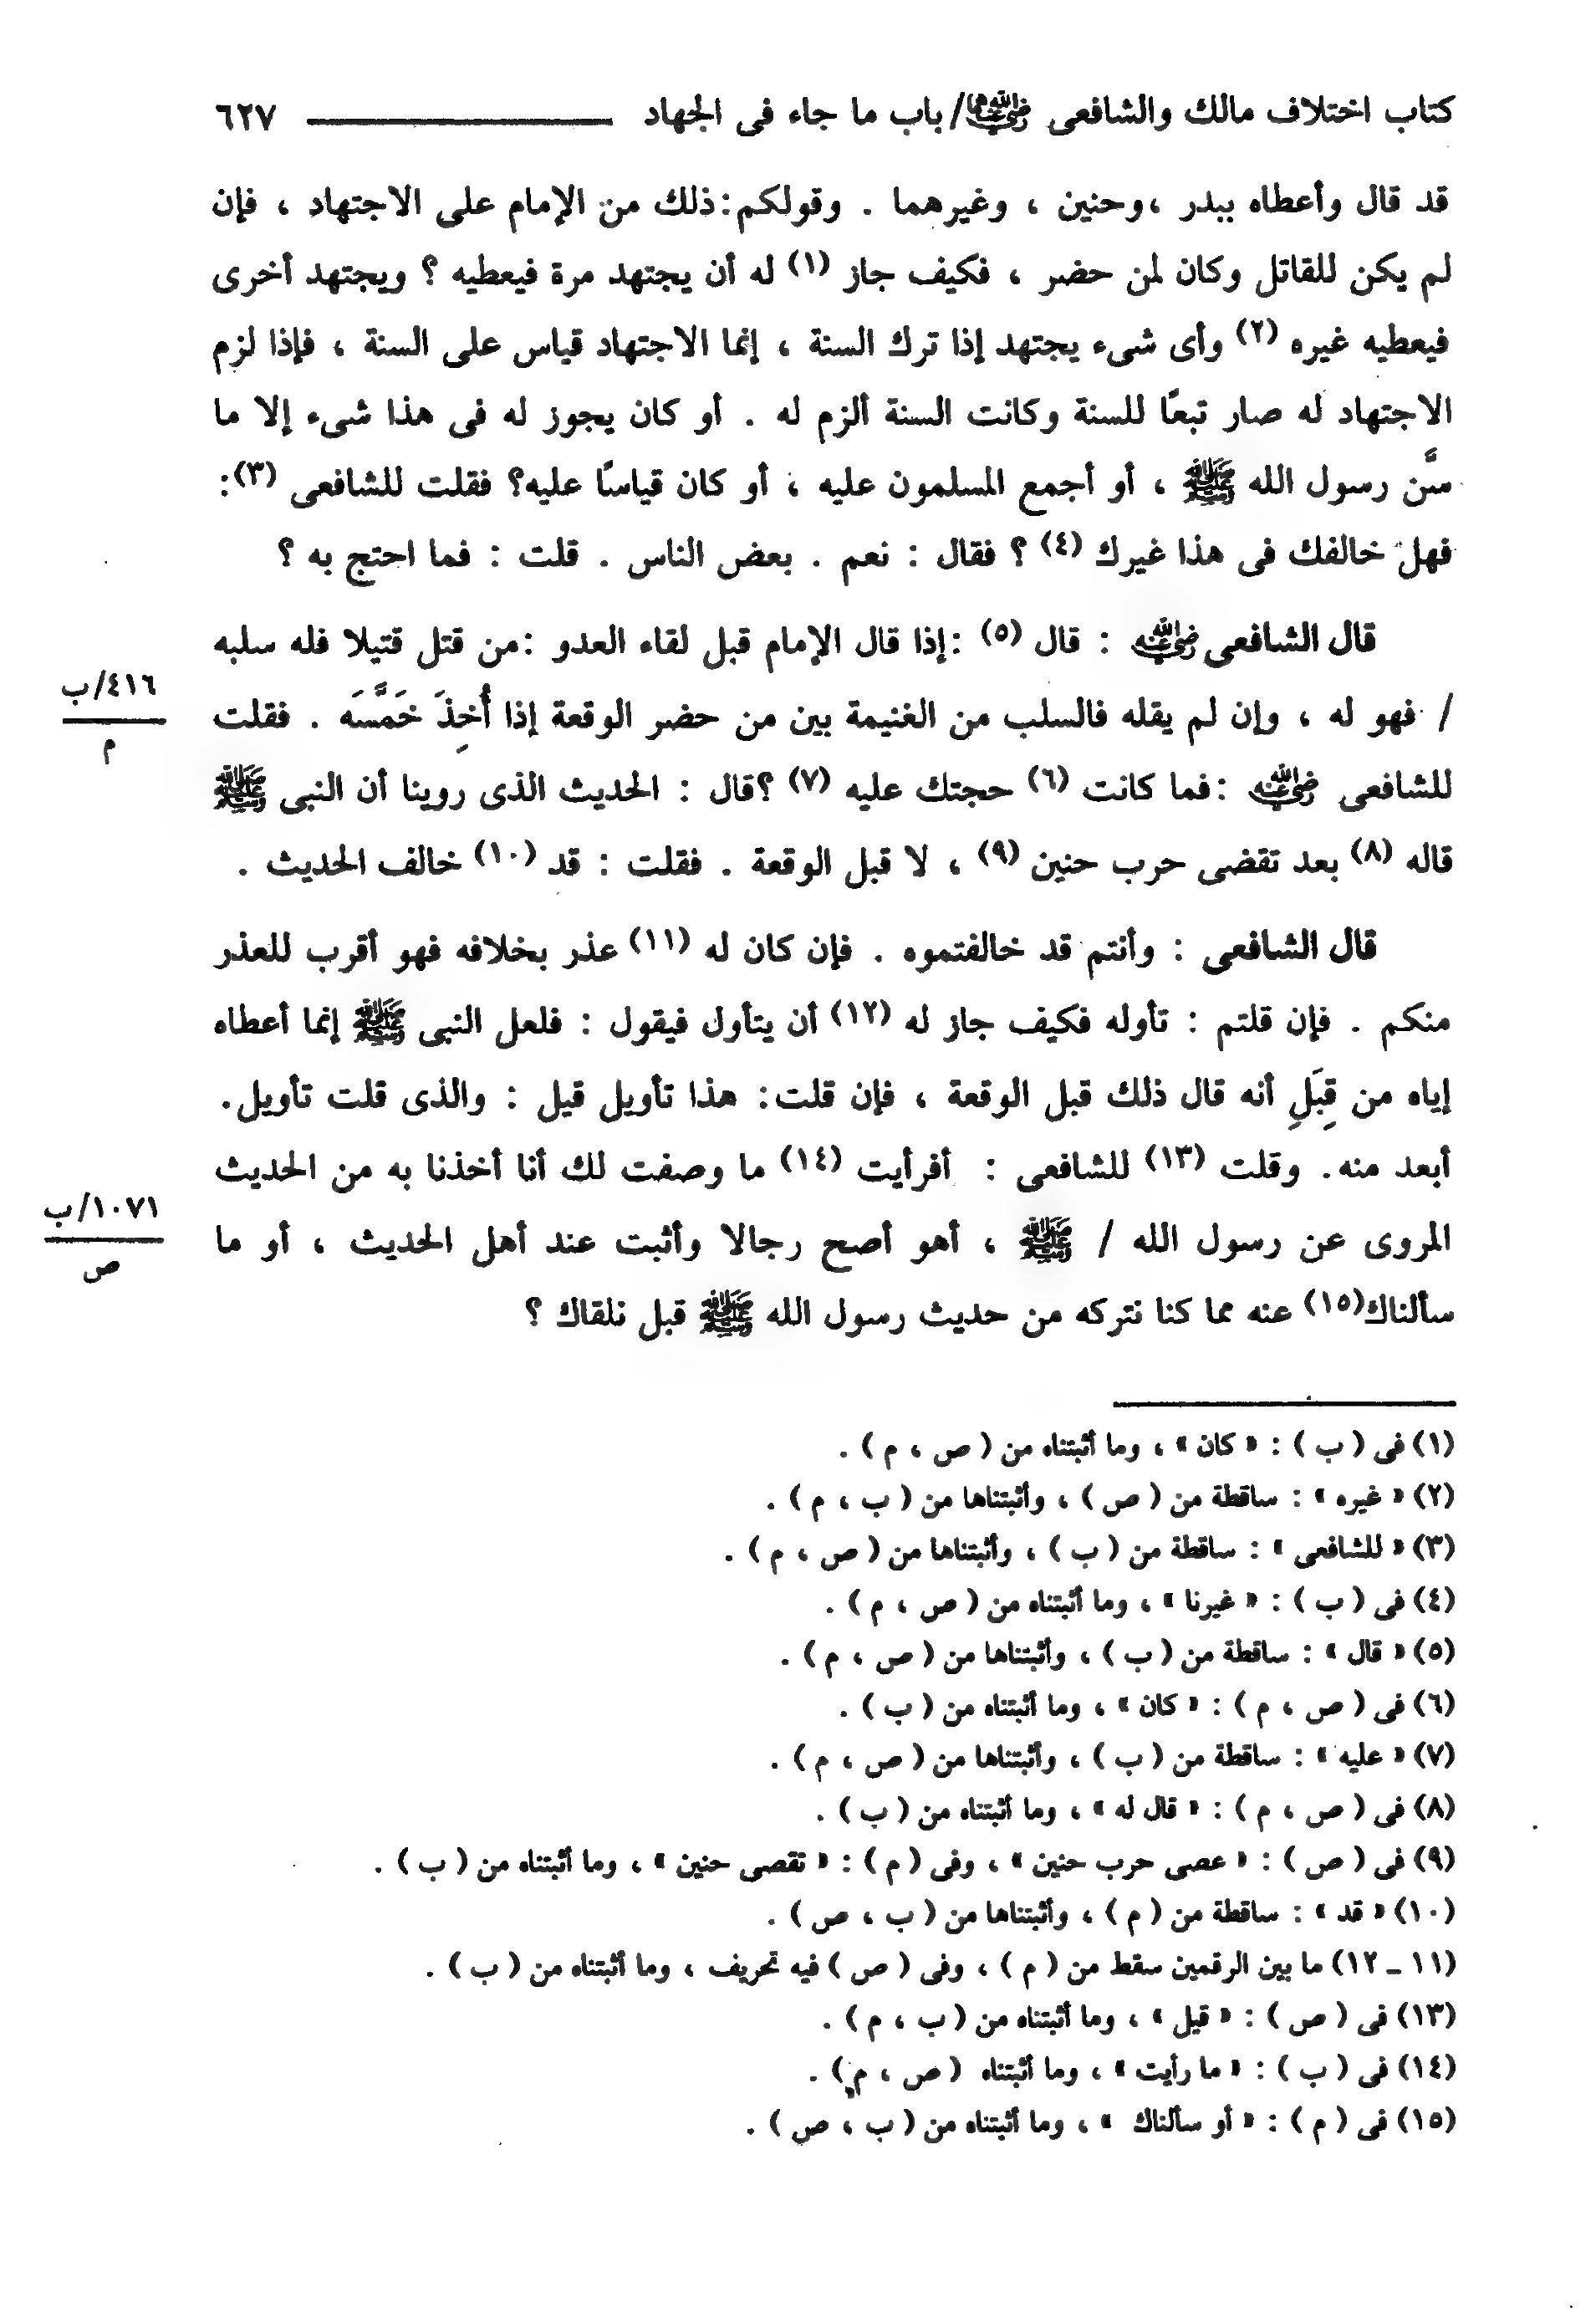 كتاب اختلاف مالك والشافعى رضي الله عنهما / باب ما جاء فى الجهاد ــــــــــــ ٦٢٧
قد قال وأعطاه ببدر ،وحنين ، وغيرهما . وقولكم:ذلك من الإمام على الاجتهاد ، فإن
لم يكن للقاتل وكان لمن حضر ، فكيف جاز (١) له أن يجتهد مرة فيعطيه ؟ ويجتهد أخرى
فيعطيه غيره (٢) وأى شىء يجتهد إذا ترك السنة ، إنما الاجتهاد قياس على السنة ، فإذا لزم
الاجتهاد له صار تبعًا للسنة وكانت السنة ألزم له . أو كان يجوز له فى هذا شىء إلا ما
سنَّ رسول الله ﷺ ، أو أجمع المسلمون عليه ، أو كان قياسًا عليه؟ فقلت للشافعى (٣):
فهل خالفك فى هذا غيرك (٤) ؟ فقال : نعم . بعض الناس . قلت : فما احتج به ؟
قال الشافعى رضي الله عنه : قال (٥) :إذا قال الإمام قبل لقاء العدو :من قتل قتيلا فله سلبه
/ فهو له ، وإن لم يقله فالسلب من الغنيمة بين من حضر الوقعة إذا أُخِذَ خَمَّسَه . فقلت
٤١٦/ب
م
للشافعى رضي الله عنه :فما كانت (٦) حجتك عليه (٧) ؟قال : الحديث الذى روينا أن النبى ﷺ
قاله (٨) بعد تقضى حرب حنين (٩) ، لا قبل الوقعة . فقلت : قد (١٠) خالف الحديث .
قال الشافعى : وأنتم قد خالفتموه . فإن كان له (١١) عذر بخلافه فهو أقرب للعذر
منكم . فإن قلتم : تأوله فكيف جاز له (١٢) أن يتأول فيقول : فلعل النبى ﷺ إنما أعطاه
إياه من قِبَلِ أنه قال ذلك قبل الوقعة ، فإن قلت: هذا تأويل قيل : والذى قلت تأويل.
أبعد منه. وقلت (١٣) للشافعى : أفرأيت (١٤) ما وصفت لك أنا أخذنا به من الحديث
المروى عن رسول الله / ﷺ ، أهو أصح رجالا وأثبت عند أهل الحديث ، أو ما
١٠٧١/ب
ص
سألناك(١٥) عنه مما كنا نتركه من حديث رسول الله ﷺ قبل نلقاك ؟
(١) فى ( ب ) : « كان » ، وما أثبتناه من ( ص ، م ) .
(٢) « غيره » : ساقطة من ( ص ) ، وأثبتناها من ( ب ، م ) .
(٣) « للشافعى » : ساقطة من ( ب ) ، وأثبتناها من ( ص ، م ) .
(٤) فى ( ب ) : « غيرنا » ، وما أثبتناه من ( ص ، م ) .
(٥) « قال » : ساقطة من ( ب ) ، وأثبتناها من ( ص ، م ) .
(٦) فى ( ص ، م ) : « كان » ، وما أثبتناه من ( ب ) .
(٧) « عليه » : ساقطة من ( ب ) ، وأثبتناها من ( ص ، م ) .
(٨) فى ( ص ، م ) : « قال له » ، وما أثبتناه من ( ب ) .
(٩) فى ( ص ) : « عصى حرب حنين » ، وفى ( م ) : « تقصى حنين » ، وما أثبتناه من ( ب ) .
(١٠) « قد » : ساقطة من ( م ) ، وأثبتناها من ( ب ، ص ) .
(١١ ـ ١٢) ما بين الرقمين سقط من ( م ) ، وفى ( ص ) فيه تحريف ، وما أثبتناه من ( ب ) .
(١٣) فى ( ص ) : « قيل » ، وما أثبتناه من ( ب ، م ) .
(١٤) فى ( ب ) : « ما رأيت » ، وما أثبتناه ( ص ، م ) .
(١٥) فى ( م ) : « أو سألناك » ، وما أثبتناه من ( ب ، ص ) .